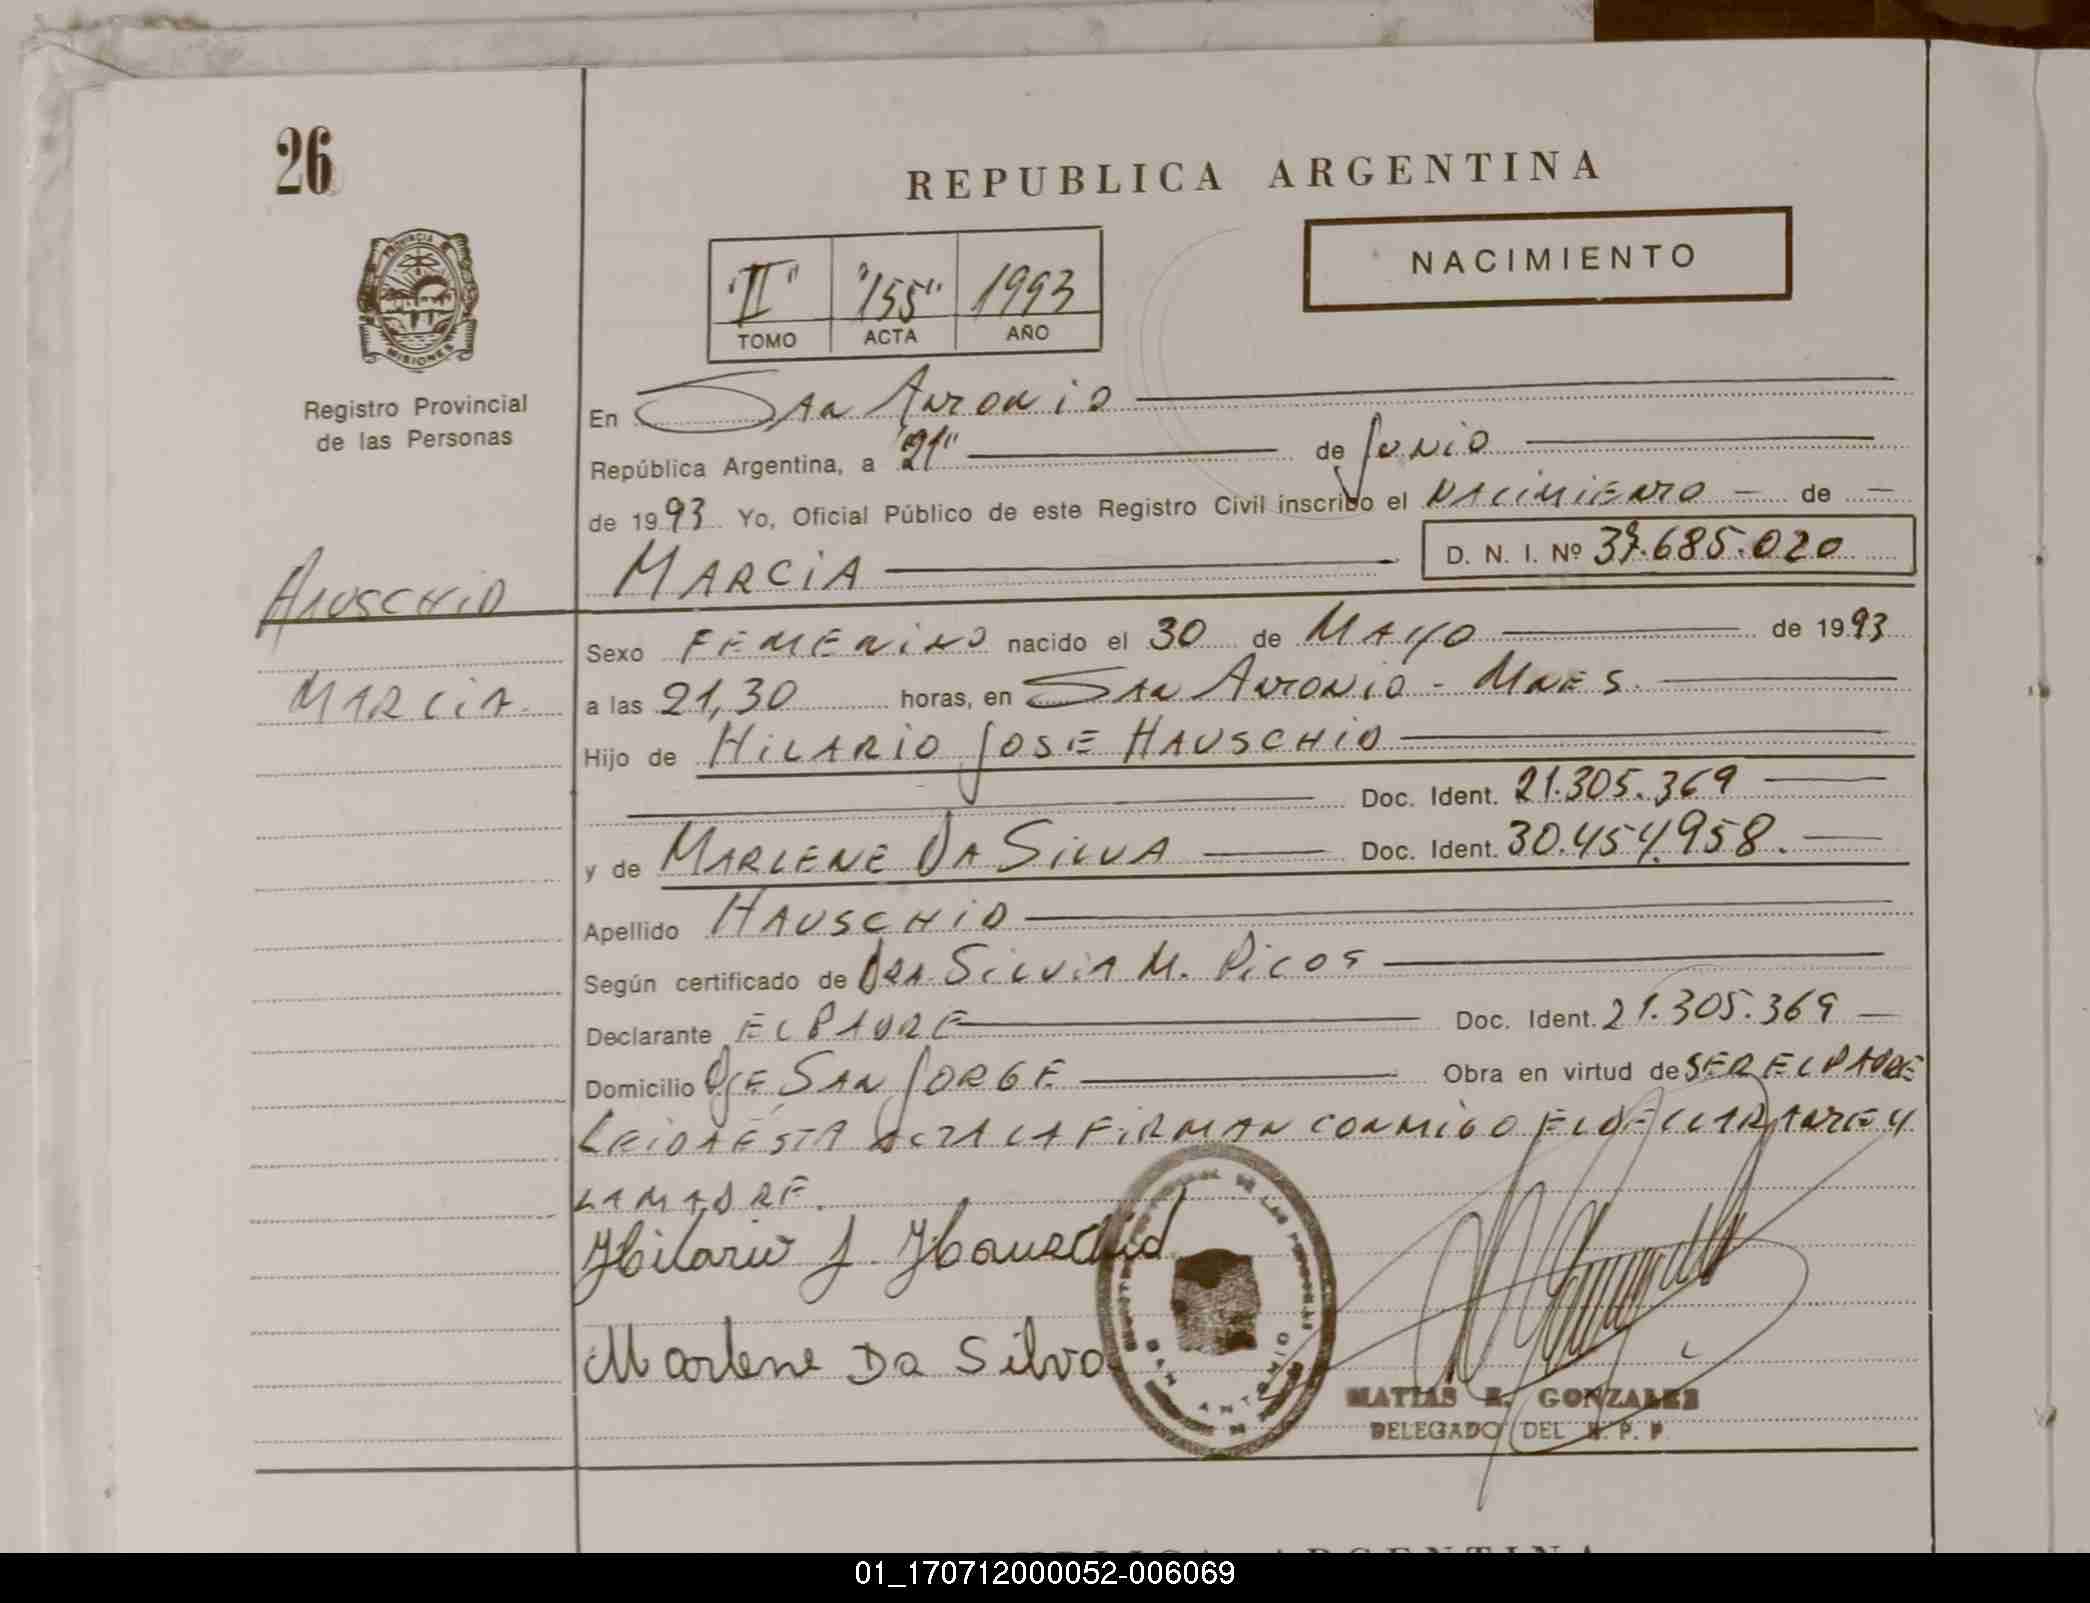 26
REPUBLICA ARGENTINA
NACIMIENTO
"II" "155" 1993
TOMO ACTA AÑO
PROVINCIA
MISIONES
Registro Provincial
de las Personas
En San Antonio
República Argentina, a "21" de Junio
de 1993 Yo, Oficial Público de este Registro Civil inscribo el NACIMIENTO - de -
MARCIA D. N. I. Nº 685.020
HAUSCHID
MARCIA.
Sexo FEMENINO nacido el 30 de MAYO de 1993
a las 21,30 horas, en SAN ANTONIO - MNES.
Hijo de HILARIO JOSE HAUSCHID
Doc. Ident. 21.305.369
y de MARLENE DA SILVA Doc. Ident. 30.454.958.
Apellido HAUSCHID
Según certificado de DRA. SILVIA M. PICOS
Declarante EL PADRE Doc. Ident. 21.305.369
Domicilio PJE SAN JORGE Obra en virtud de SER EL PADRE
LEIDA ESTA ACTA LA FIRMAN CONMIGO EL DECLARANTE Y
LA MADRE.
Hilario J. Hauschid
Marlene Da Silva
SAN ANTONIO
MATIAS R. GONZALEZ
DELEGADO DEL R. P. P.
01_170712000052-006069